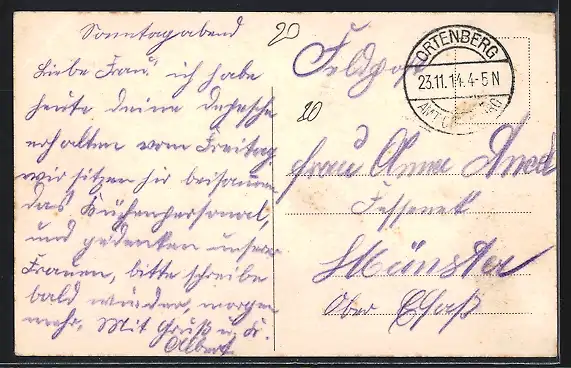 Sonntagabend
Liebe Frau! ich habe
heute deine depesche
erhalten vom Freitag
wir sitzen hir beisamen
das Küchenpersonal,
und gedenken unsrer
Frauen, bitte schreibe
bald wieder, morgen
mehr. Mit Gruß u. K.
Albert
20
20
Feldpost
ORTENBERG
23.11.14. 4-5 N
AMT
Frau Anna
Münster
Ober Elsaß